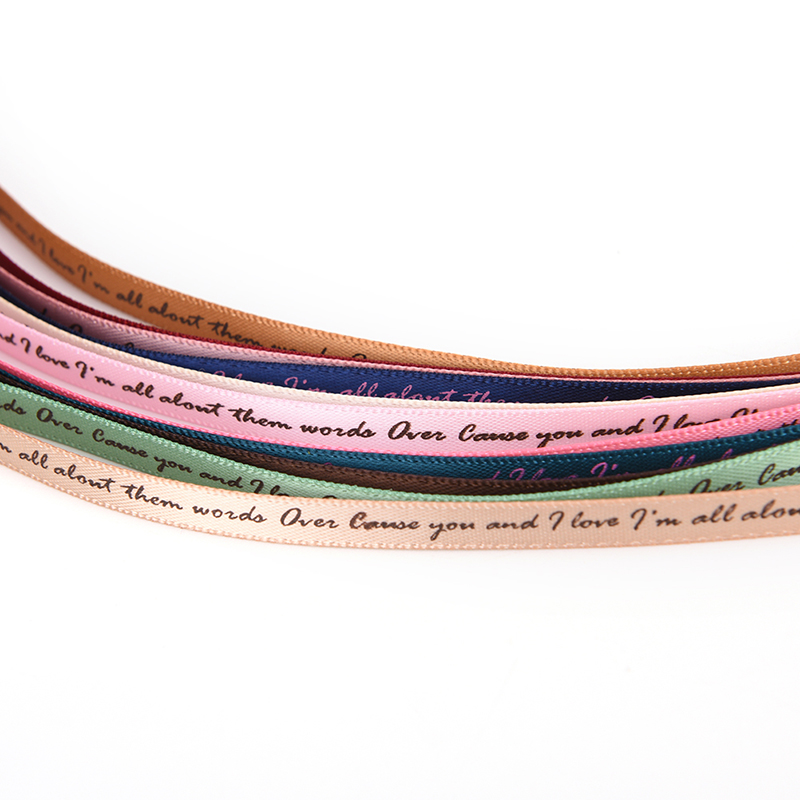 and I love I'm all about them words Over
I'm all about them
and I love I'm all about them words Over Cause you and I love
I love I'm all
words Over Cause you and I love
Over
all about them words Over Cause you and I love I'm all